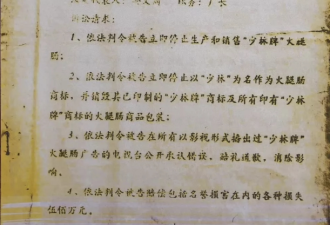 诉讼请求：
1、依法判令被告立即停止生产和销售“少林牌”火腿
肠；
2、依法判令被告立即停止以“少林”为名作为火腿肠
商标，并销毁其已印制的“少林牌”商标及所有印有“少林
牌”商标的火腿肠商品包装；
3、依法判令被告在所有以影视形式播出过“少林牌”
火腿肠广告的电视台公开承认错误，赔礼道歉，消除影
响。
4、依法判令被告赔偿包括名誉损害在内的各种损失
伍佰万元。